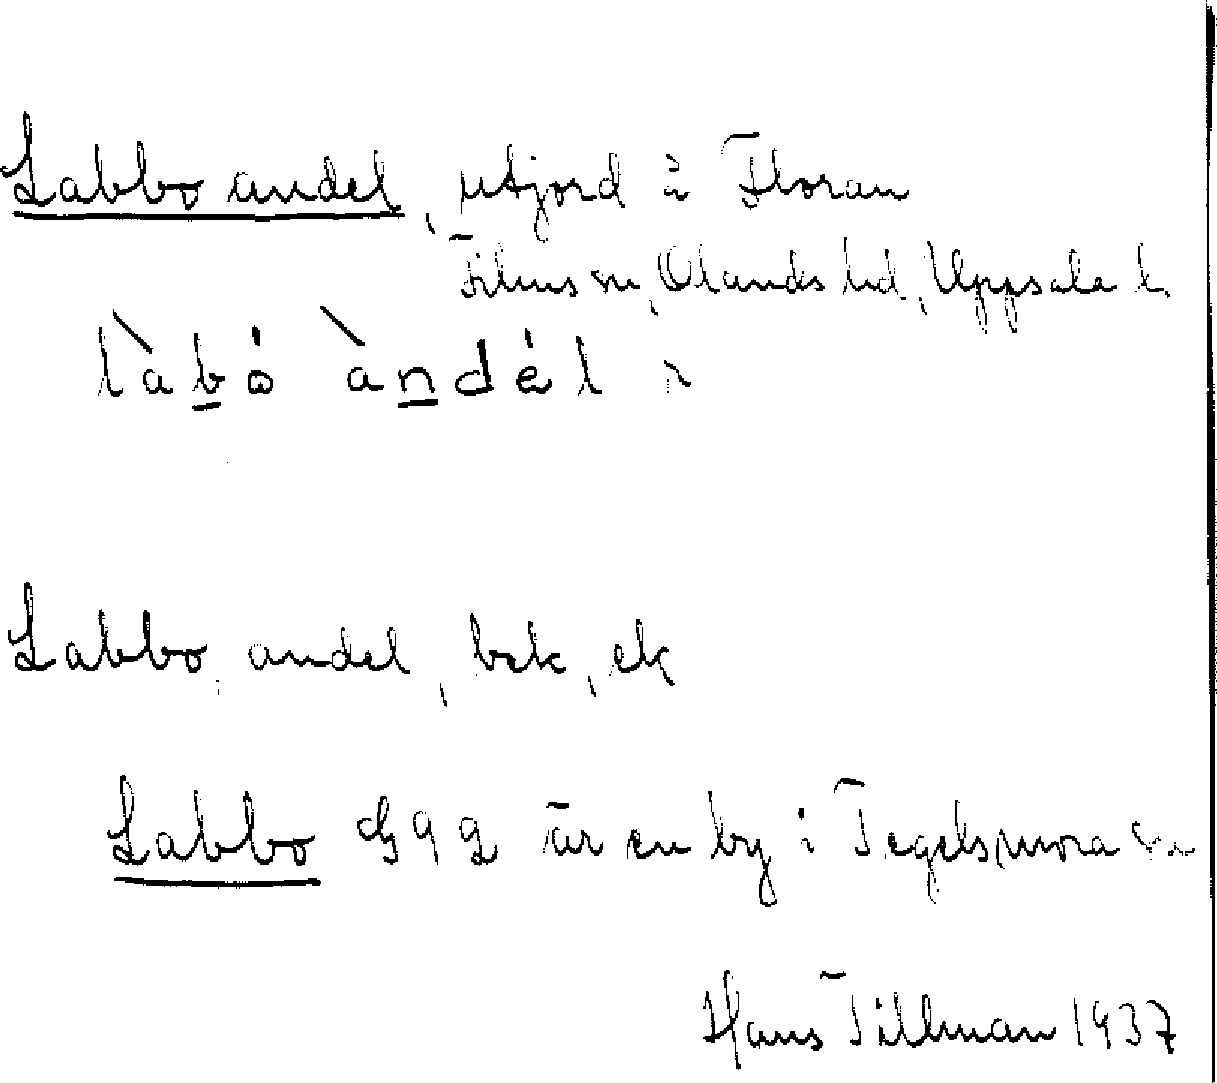 Labbo andel, utjord å Floran
Films sn, Olands hd, Uppsala l.
làbȯ àndėl
Labbo andel, bek, ek
Labbo är en by i Tegelsmora sn
Hans Tillman 1937